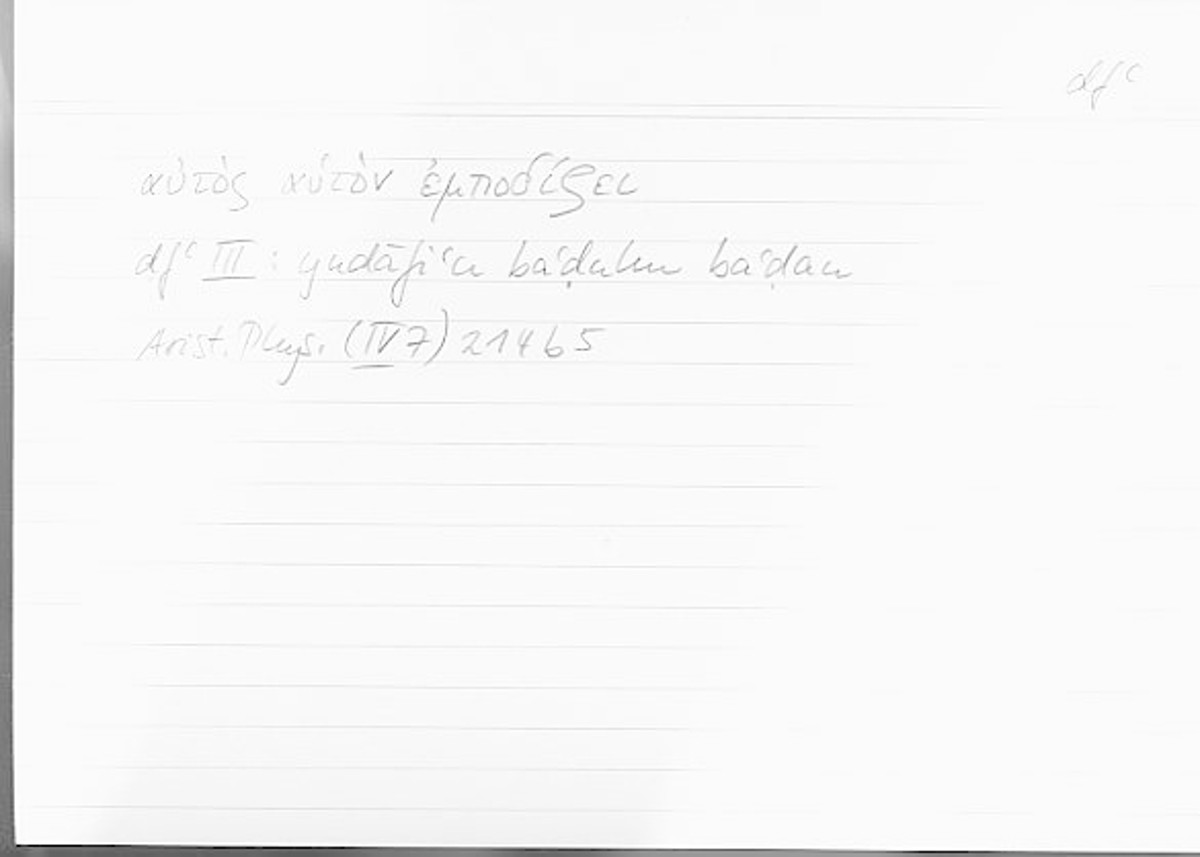 dfʿ
αὐτὸς αὑτὸν ἐμποδίζει
dfʿ III : yudāfiʿu baʿḍuhu baʿḍan
Arist. Phys. (IV 7) 214 b 5